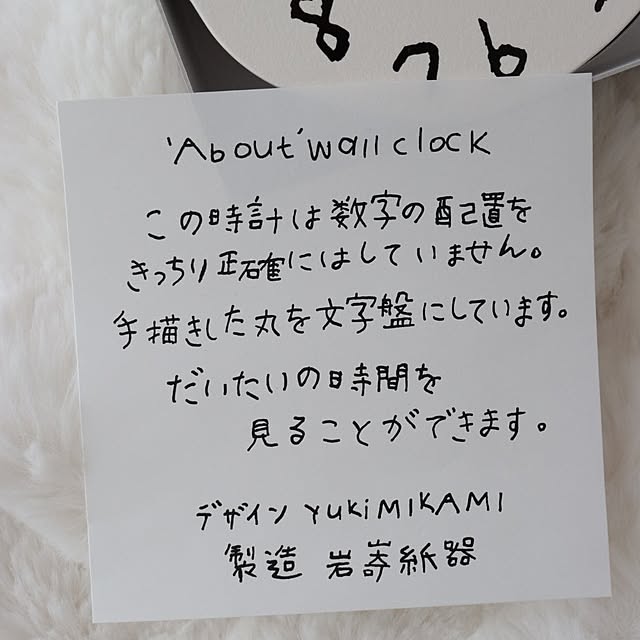 8 7 6
'About' wall clock
この時計は数字の配置を
きっちり正確にはしていません。
手描きした丸を文字盤にしています。
だいたいの時間を
見ることができます。
デザイン YUKiMIKAMI
製造 岩嵜紙器